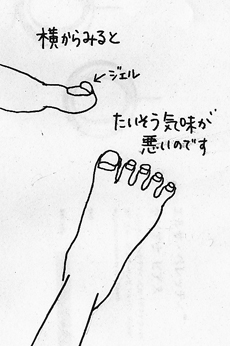 横からみると
←ジェル
たいそう気味が
悪いのです